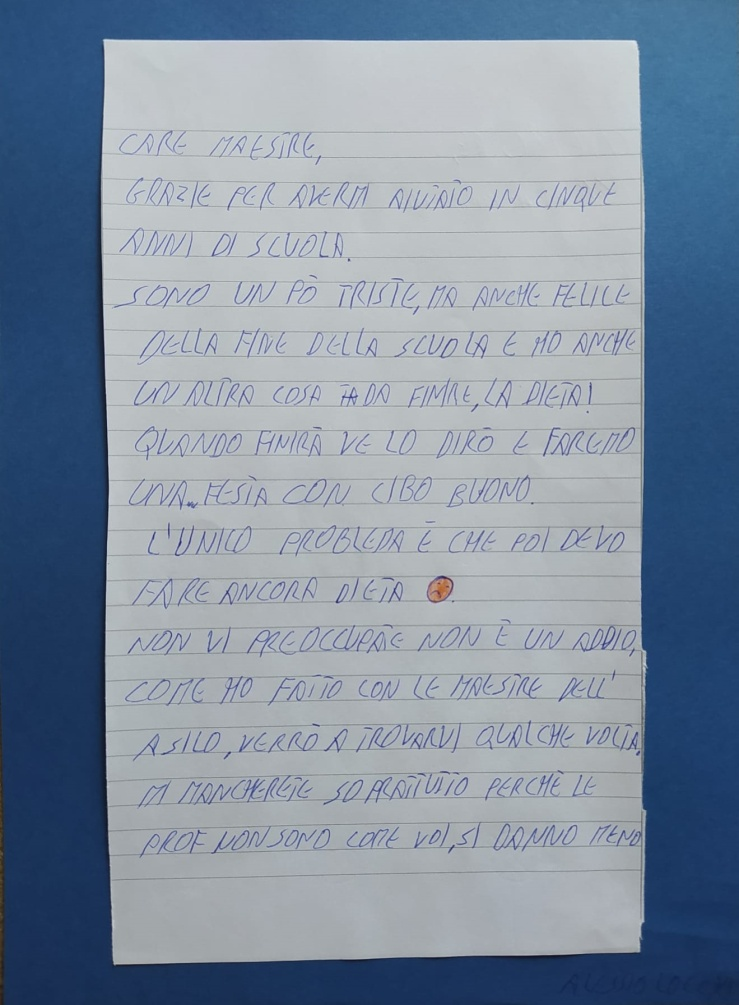 CARE MAESTRE,
GRAZIE PER AVERMI AIUTATO IN CINQUE
ANNI DI SCUOLA.
SONO UN PÒ TRISTE, MA ANCHE FELICE
DELLA FINE DELLA SCUOLA E HO ANCHE
UN ALTRA COSA DA FINIRE, LA DIETA!
QUANDO FINIRÀ VE LO DIRÒ E FAREMO
UNA FESTA CON CIBO BUONO.
L'UNICO PROBLEMA È CHE POI DEVO
FARE ANCORA DIETA
NON VI PREOCCUPATE NON È UN ADDIO,
COME HO FATTO CON LE MAESTRE DELL'
ASILO, VERRÒ A TROVARVI QUALCHE VOLTA.
MI MANCHERETE SOPRATTUTTO PERCHÈ LE
PROF NON SONO COME VOI, SI DANNO MENO